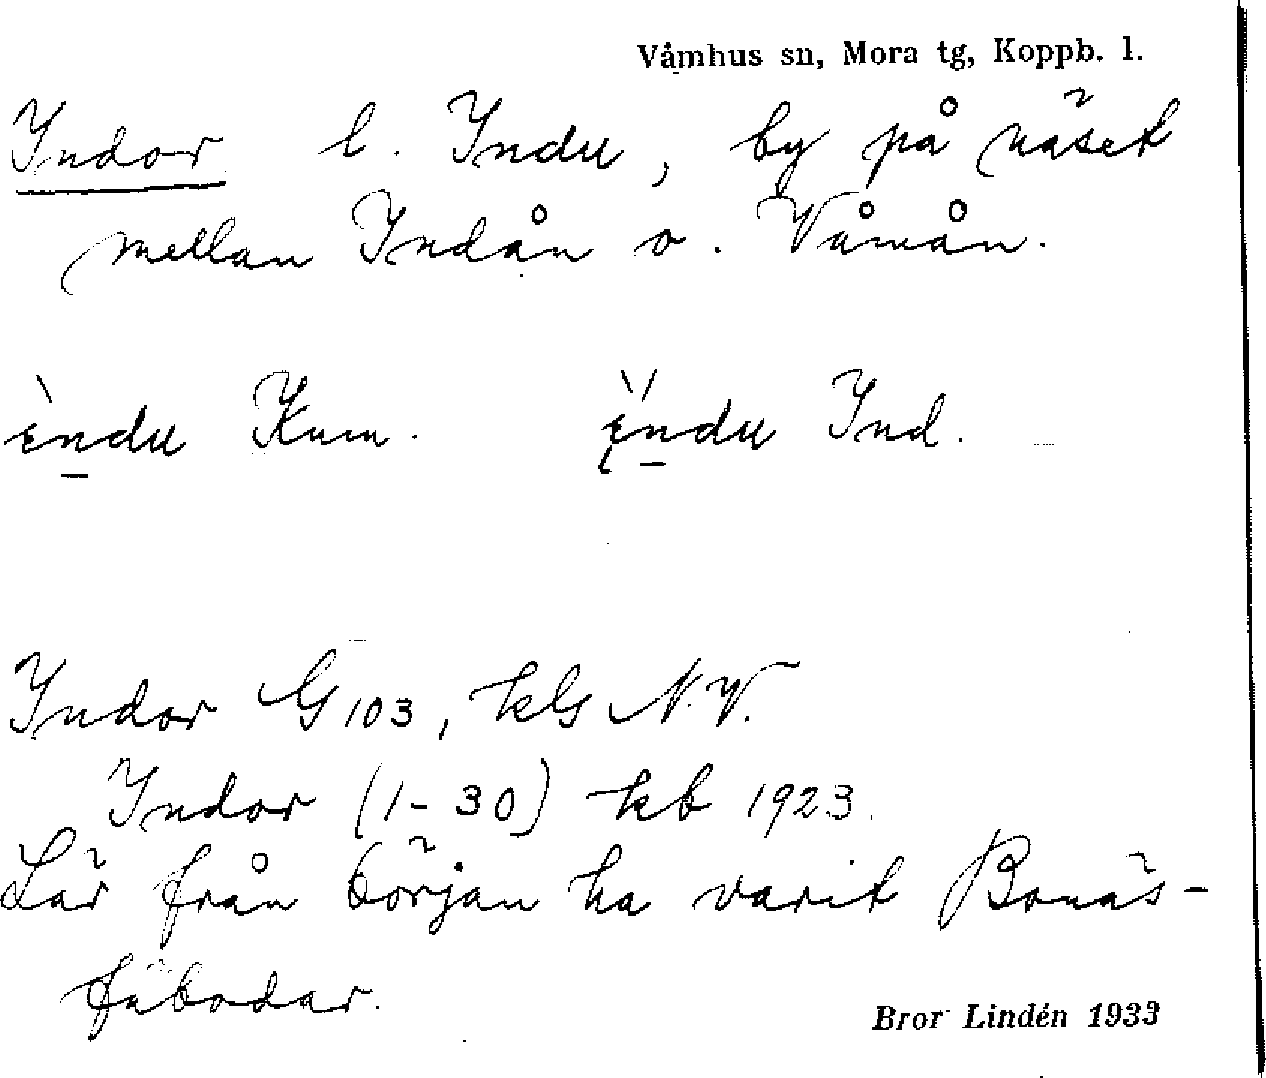 Våmhus sn, Mora tg, Koppb. l.
Indor l. Indu, by på näset
mellan Indån o. Våmån.
èndu Kum. ĭ́ndu Ind.
Indor G 103, kls N.V.
Indor (1-30) kb 1923.
Lär från början ha varit Bonäs-
fäbodar.
Bror Lindén 1933